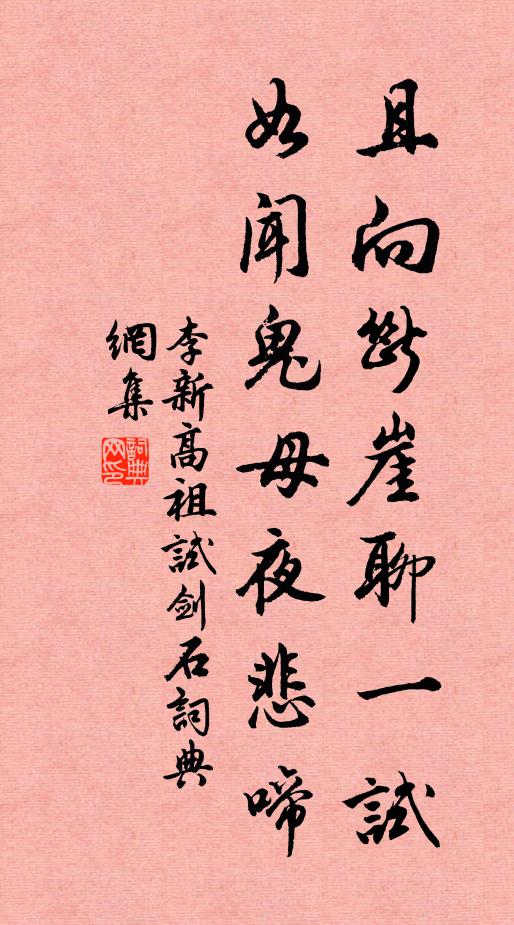 且向斷崖聊一試
如聞鬼母夜悲啼
李新高祖試劍石詞典
網集
詞典
网印